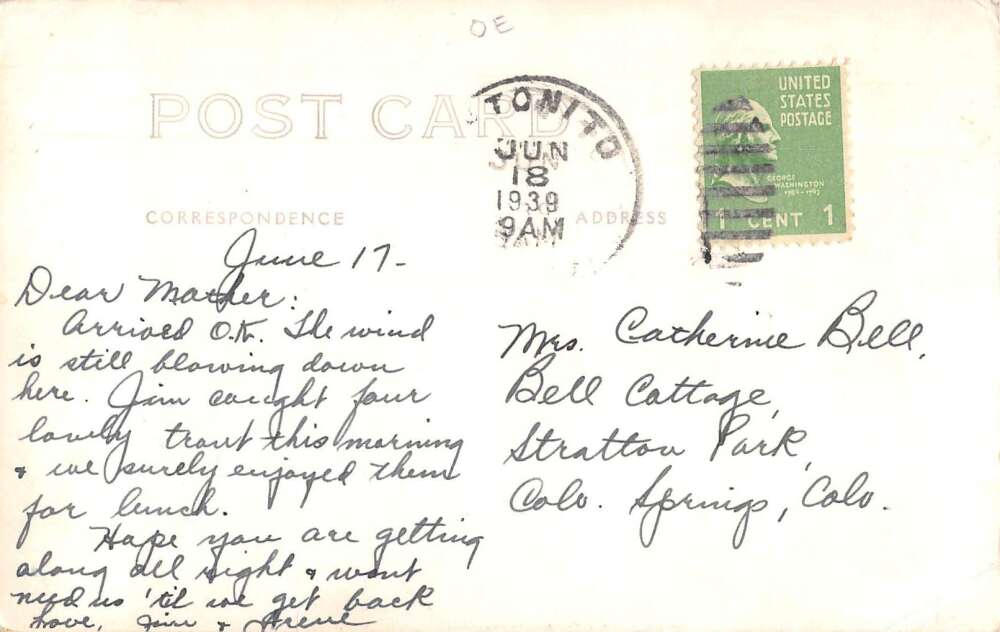 OE
POST CARD
TONITO
JUN
18
1939
9AM
UNITED
STATES
POSTAGE
GEORGE
WASHINGTON
1 CENT 1
CORRESPONDENCE
ADDRESS
June 17-
Dear Mother:
Arrived O.K. The wind
is still blowing down
here. Jim caught four
lovely trout this morning
& we surely enjoyed them
for lunch.
Hope you are getting
along all right & wont
need us 'til we get back
Love, Jim & Irene
Mrs. Catherine Bell,
Bell Cottage,
Stratton Park,
Colo. Springs, Colo.